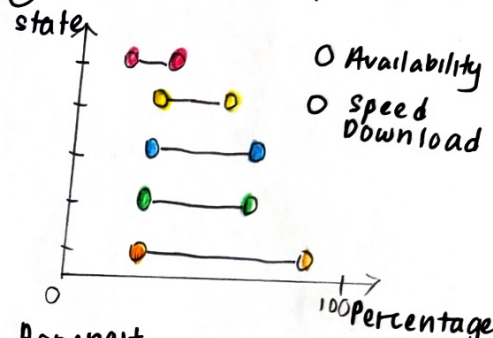 state
O Availability
O Speed
Download
0
100 Percentage